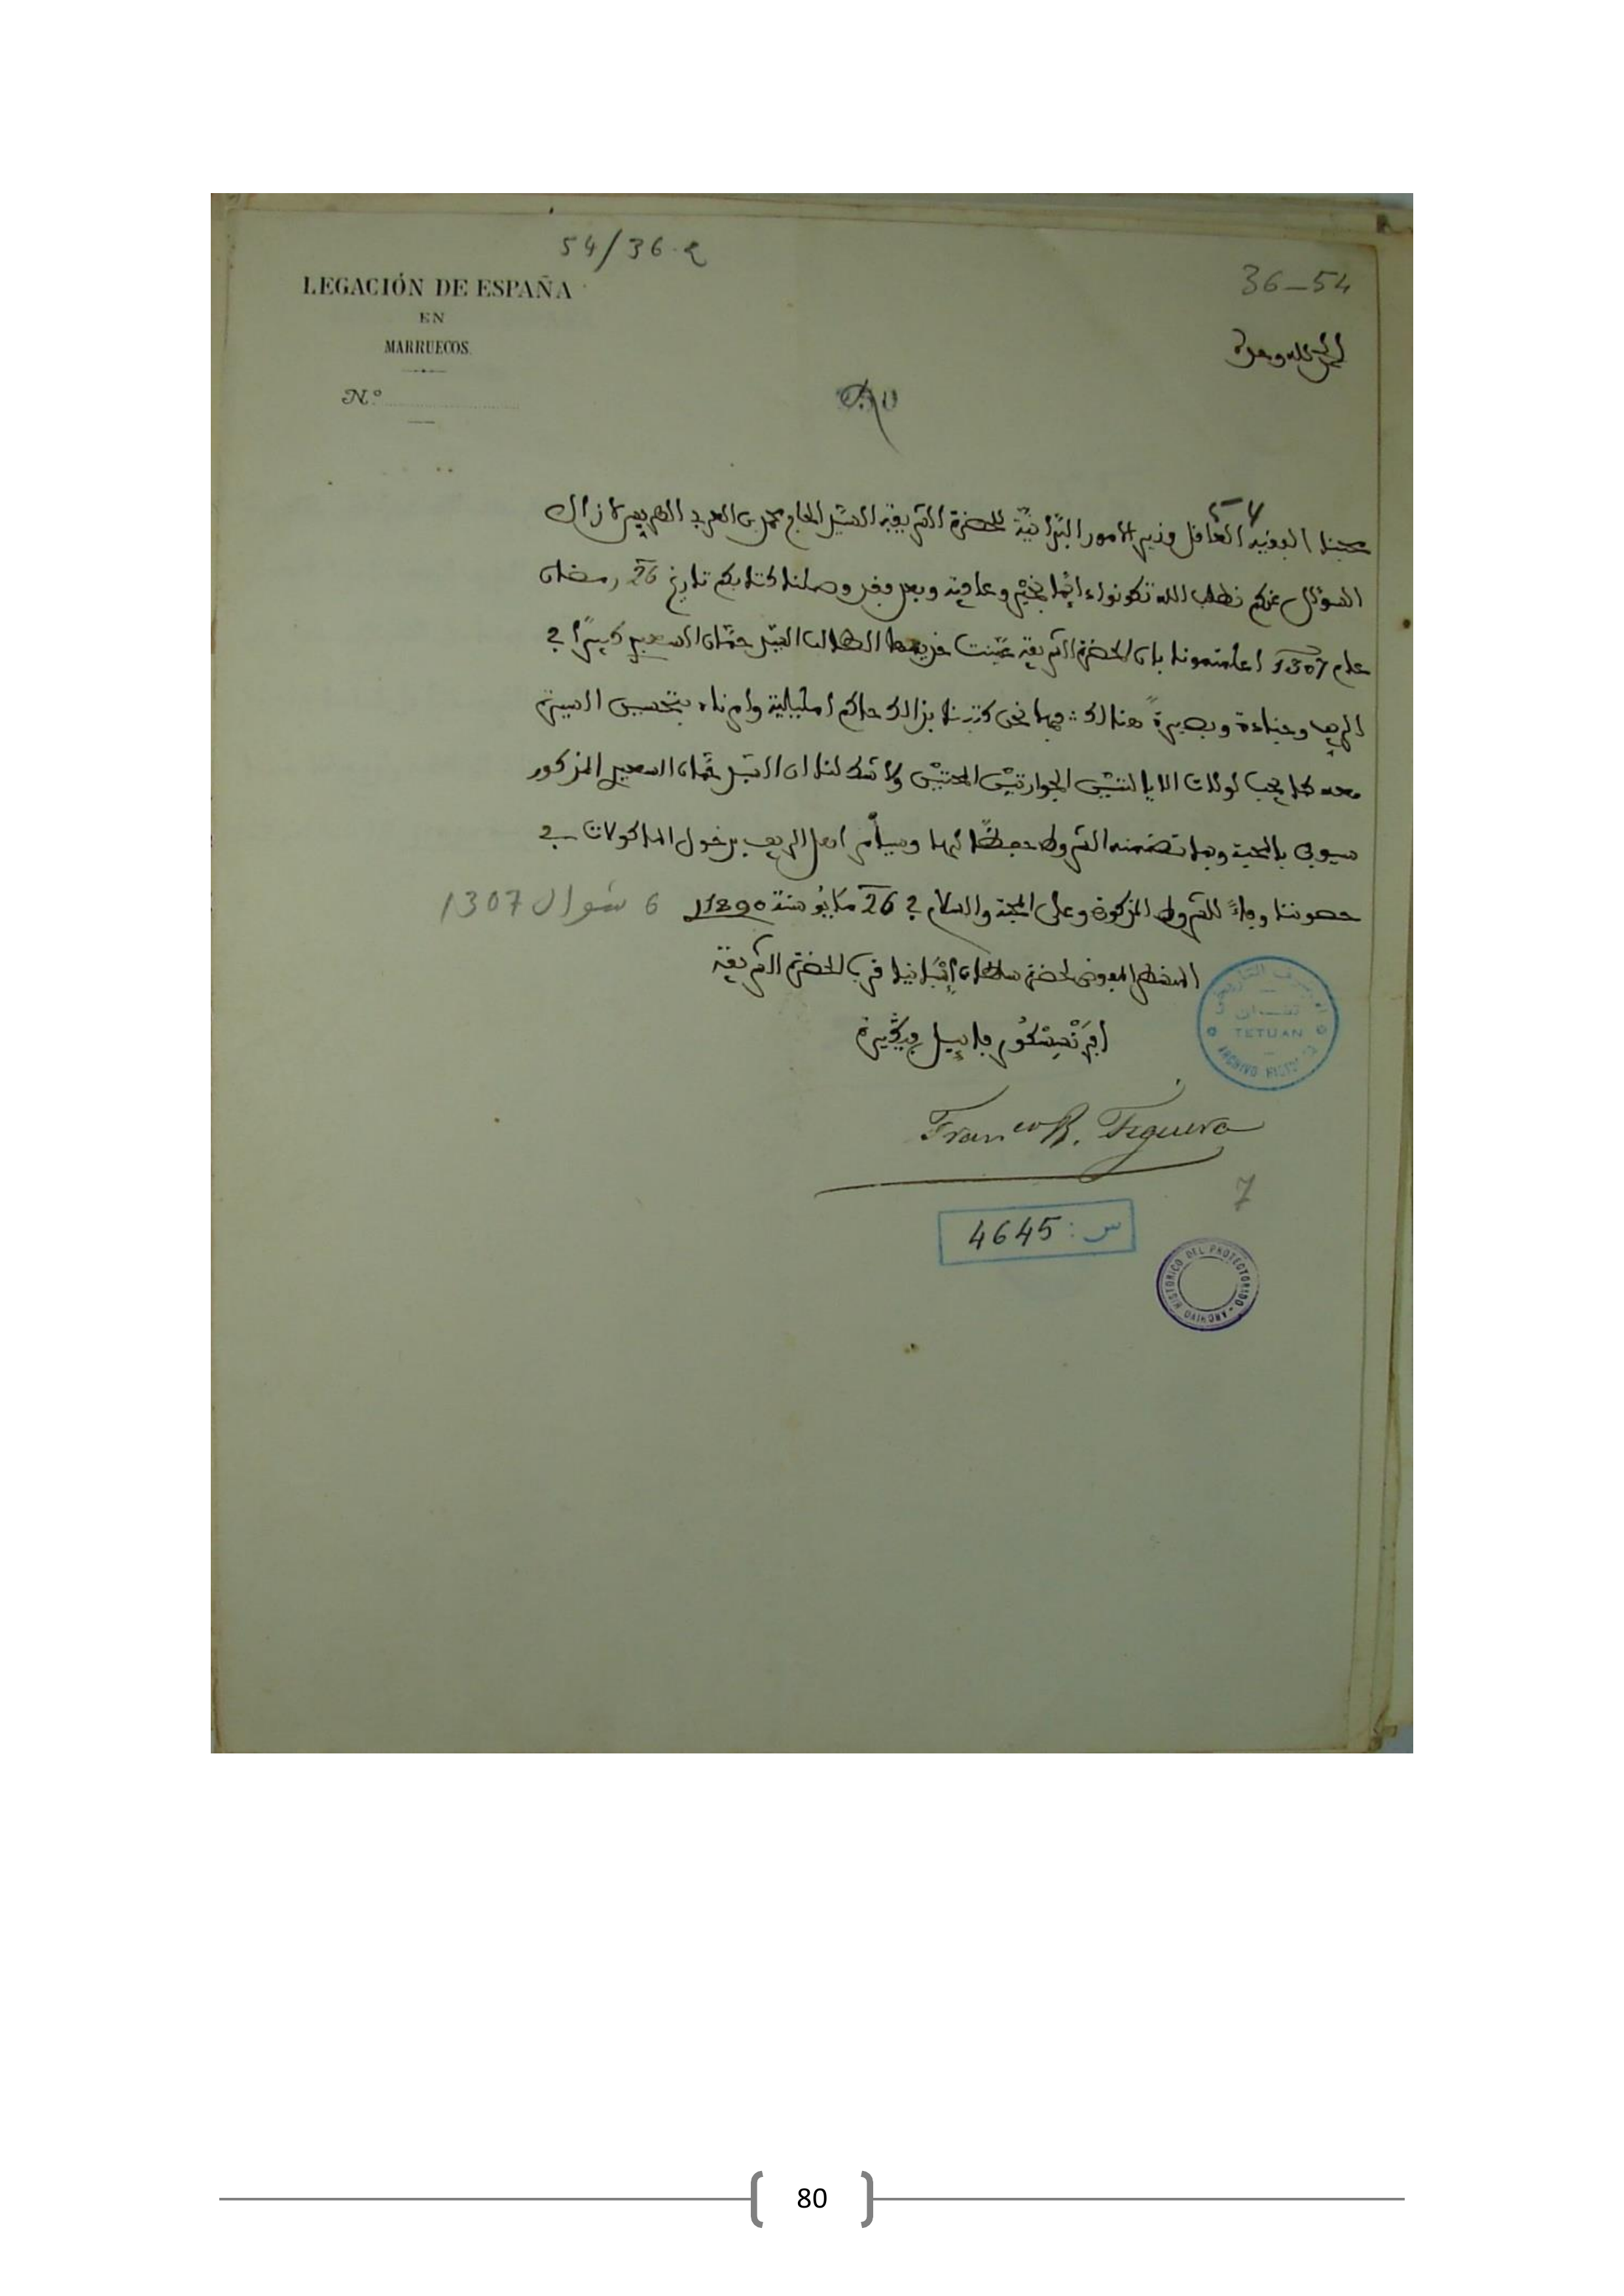 54/36-2
36-54
LEGACIÓN DE ESPAÑA
EN
MARRUECOS.
N.º
الحمد لله وحده
محبنا الفقيه العاقل وزير الامور البرانية للحضرة الشريفة السيد الحاج محمد بن العربي الطريس لا زال
السؤال عنكم نطلب الله تكونوا دائما بخير وعافية وبعد فقد وصلنا كتابكم تاريخ 26 رمضان
عام 1307 اعلمتمونا بان الحضرة الشريفة عينت خديمها الطالب السيد حمان السعيد كبيرًا في
الريف وجنادة وبصيرةً هنالك فها نحن كتبنا بذالك حاكم امليلية وامرناه بتحسين السيرة
معه كما يجب لولات الايالتين الجوارتين المحبتين ولا شك لنا ان السيد حمان السعيد المذكور
سيوفي بالمحبة وبما تضمنه الشروط حفظًا لها وسيأمر اهل الريف بدخول الماكولات في
حصوننا وفاءً للشروط المذكورة وعلى المحبة والسلام في 26 مايُو سنة 1890 6 شوال 1307
المفوض لحضرة سلطان إسبانيا قرب الحضرة الشريفة
افرَنْصِيسْكُو رفاييل فيكيرة
الأرشيف التاريخي
تطوان
TETUAN
ARCHIVO HISTORICO
Franco R. Figuera
7
س : 4645
ARCHIVO HISTORICO DEL PROTECTORADO
80